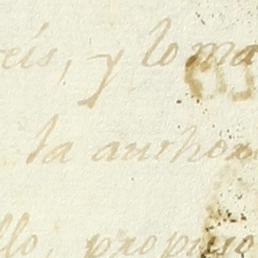 eis, y lo ma
la anchor
llo, propuso